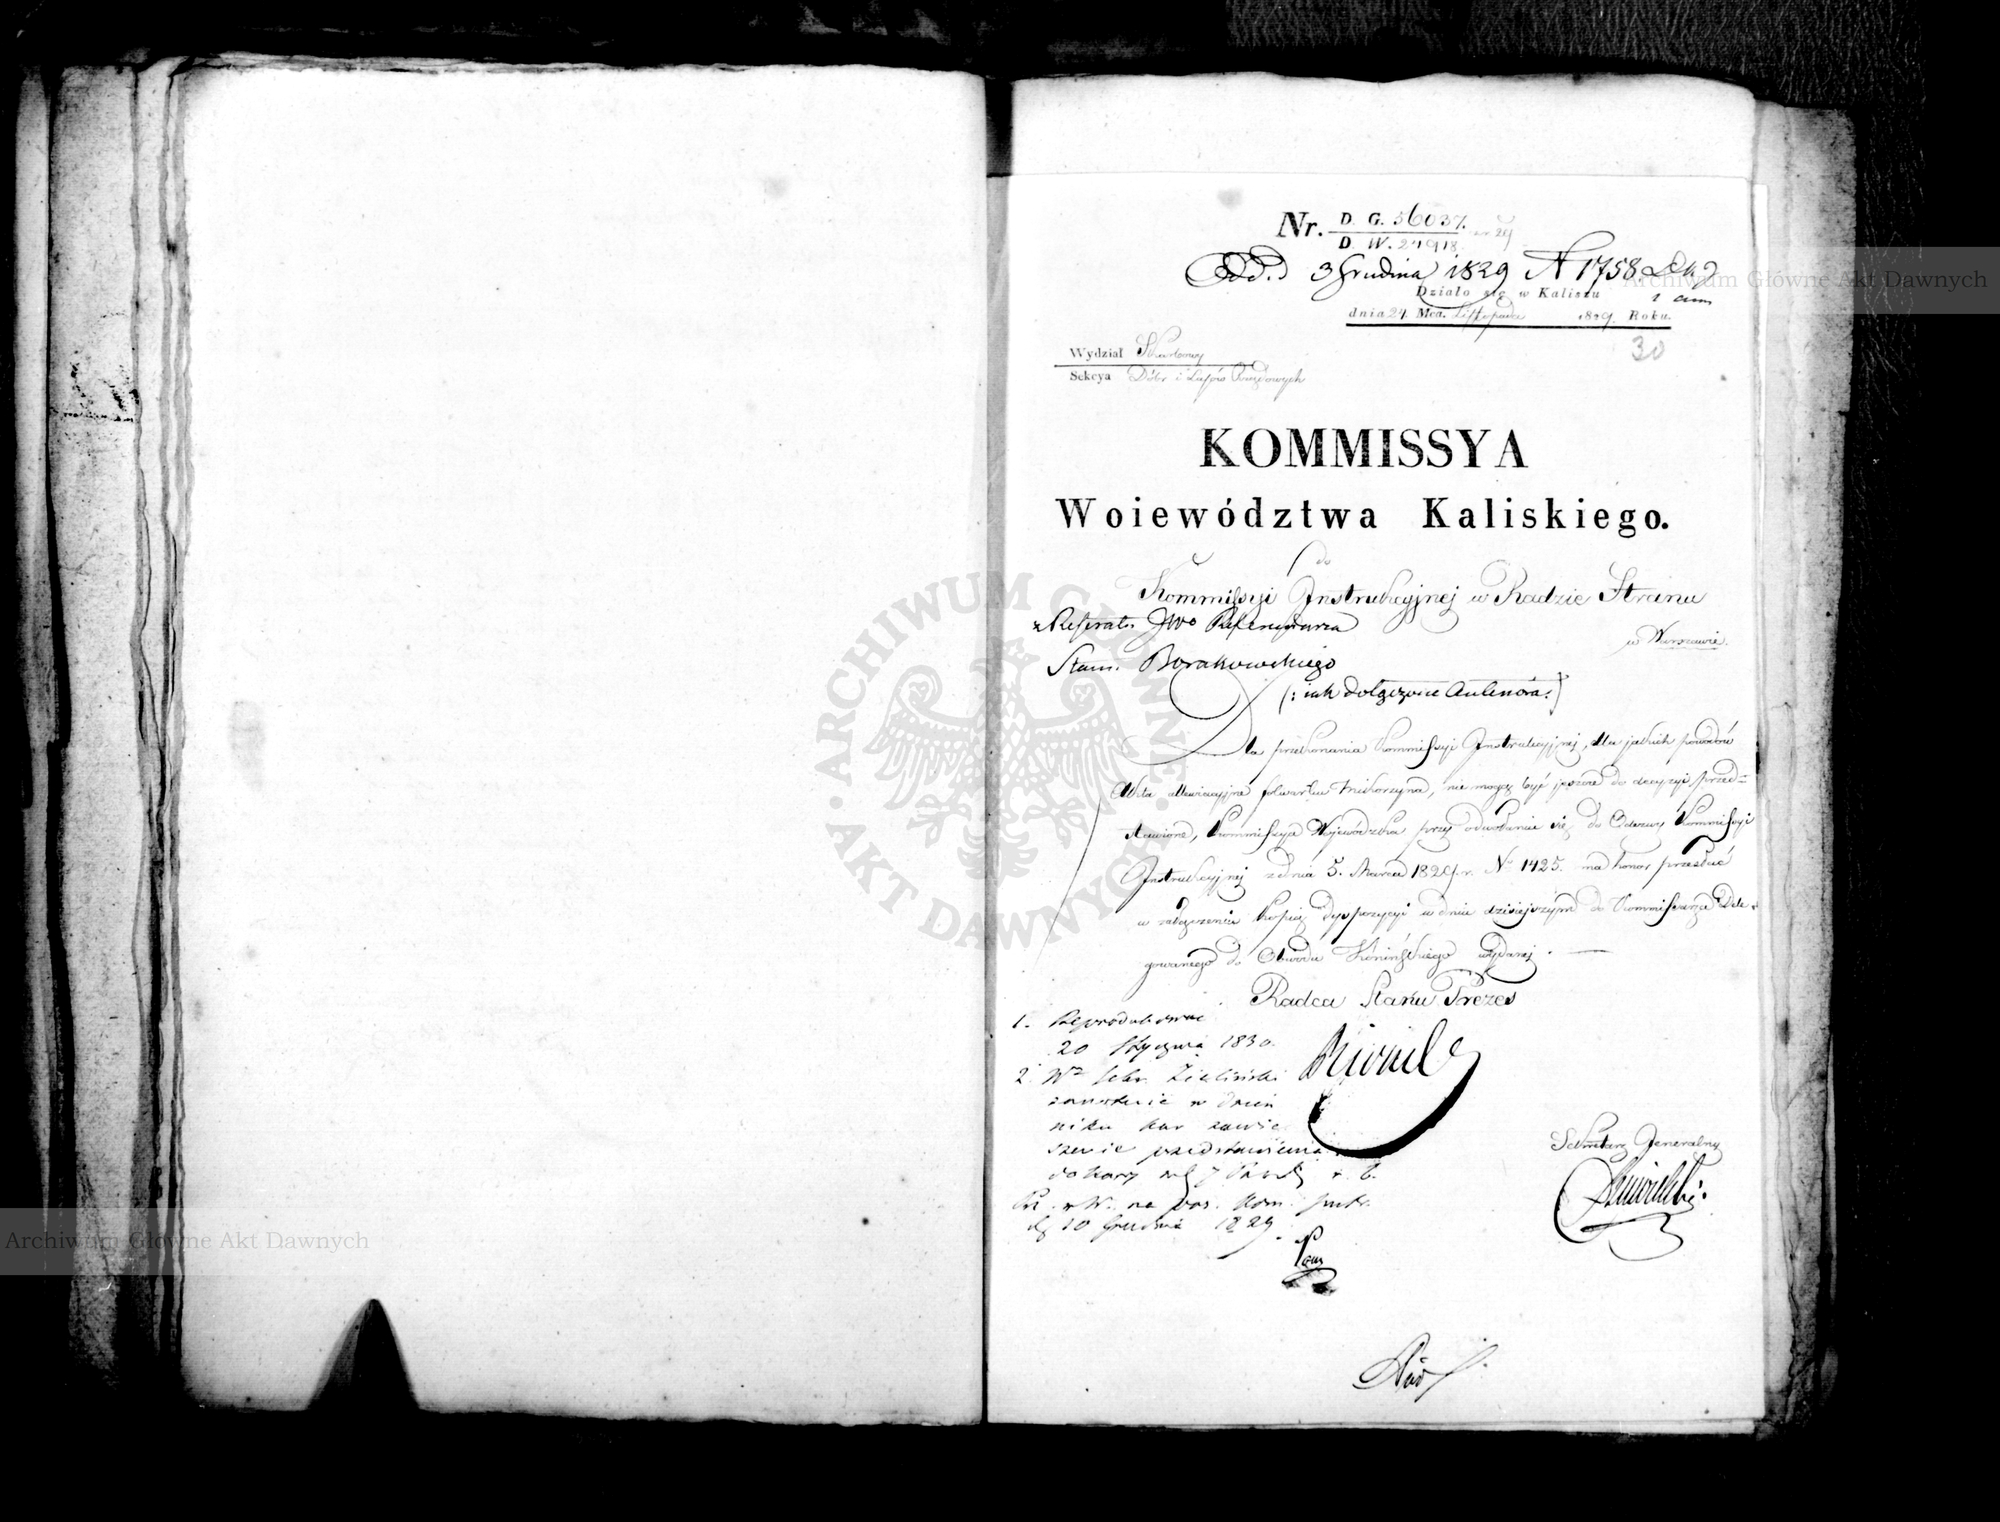 Nr. D. G. 56037.
D. W. 24918.
3 Grudnia 1829 N 1758.
Działo się w Kaliszu
dnia 24 Mca. Listopada 1829. Roku.
30
Wydział Skarbowy
Sekcya Dóbr i Lasów Rządowych
KOMMISSYA
Woiewództwa Kaliskiego.
do
Kommissyi Instrukcyjnej w Radzie Stanu
z Referatu JWo Referendarza
w Warszawie.
Stan. Borakowskiego
(: iak dołączone
Dla przekonania Kommissyi Instrukcyjnej, dla jakich powodów
Akta folwarku Mikorzyna, nie mogą być jeszcze do decyzyi przed=
stawione, Kommissya Wojewódzka przy odwołaniu się do Odezwy Kommissyi
Instrukcyjnej z dnia 5. Marca 1829. r. N 1425. ma honor przesłać
w załączeniu kopią dyspozycyi w dniu dzisiejszym do Kommissarza Dele
gowanego do Obwodu Konińskiego wydanej. —
Radca Stanu Prezes
1. Reprodukować
20 Stycznia 1830.
2. Zieliński
zanotuie w dzien
niku
szenie przedstawienia
na pos. Kom. Instr.
10 Grudnia 1829.
Sekretarz Jeneralny
ARCHIWUM GŁÓWNE AKT DAWNYCH
Archiwum Główne Akt Dawnych
Archiwum Główne Akt Dawnych